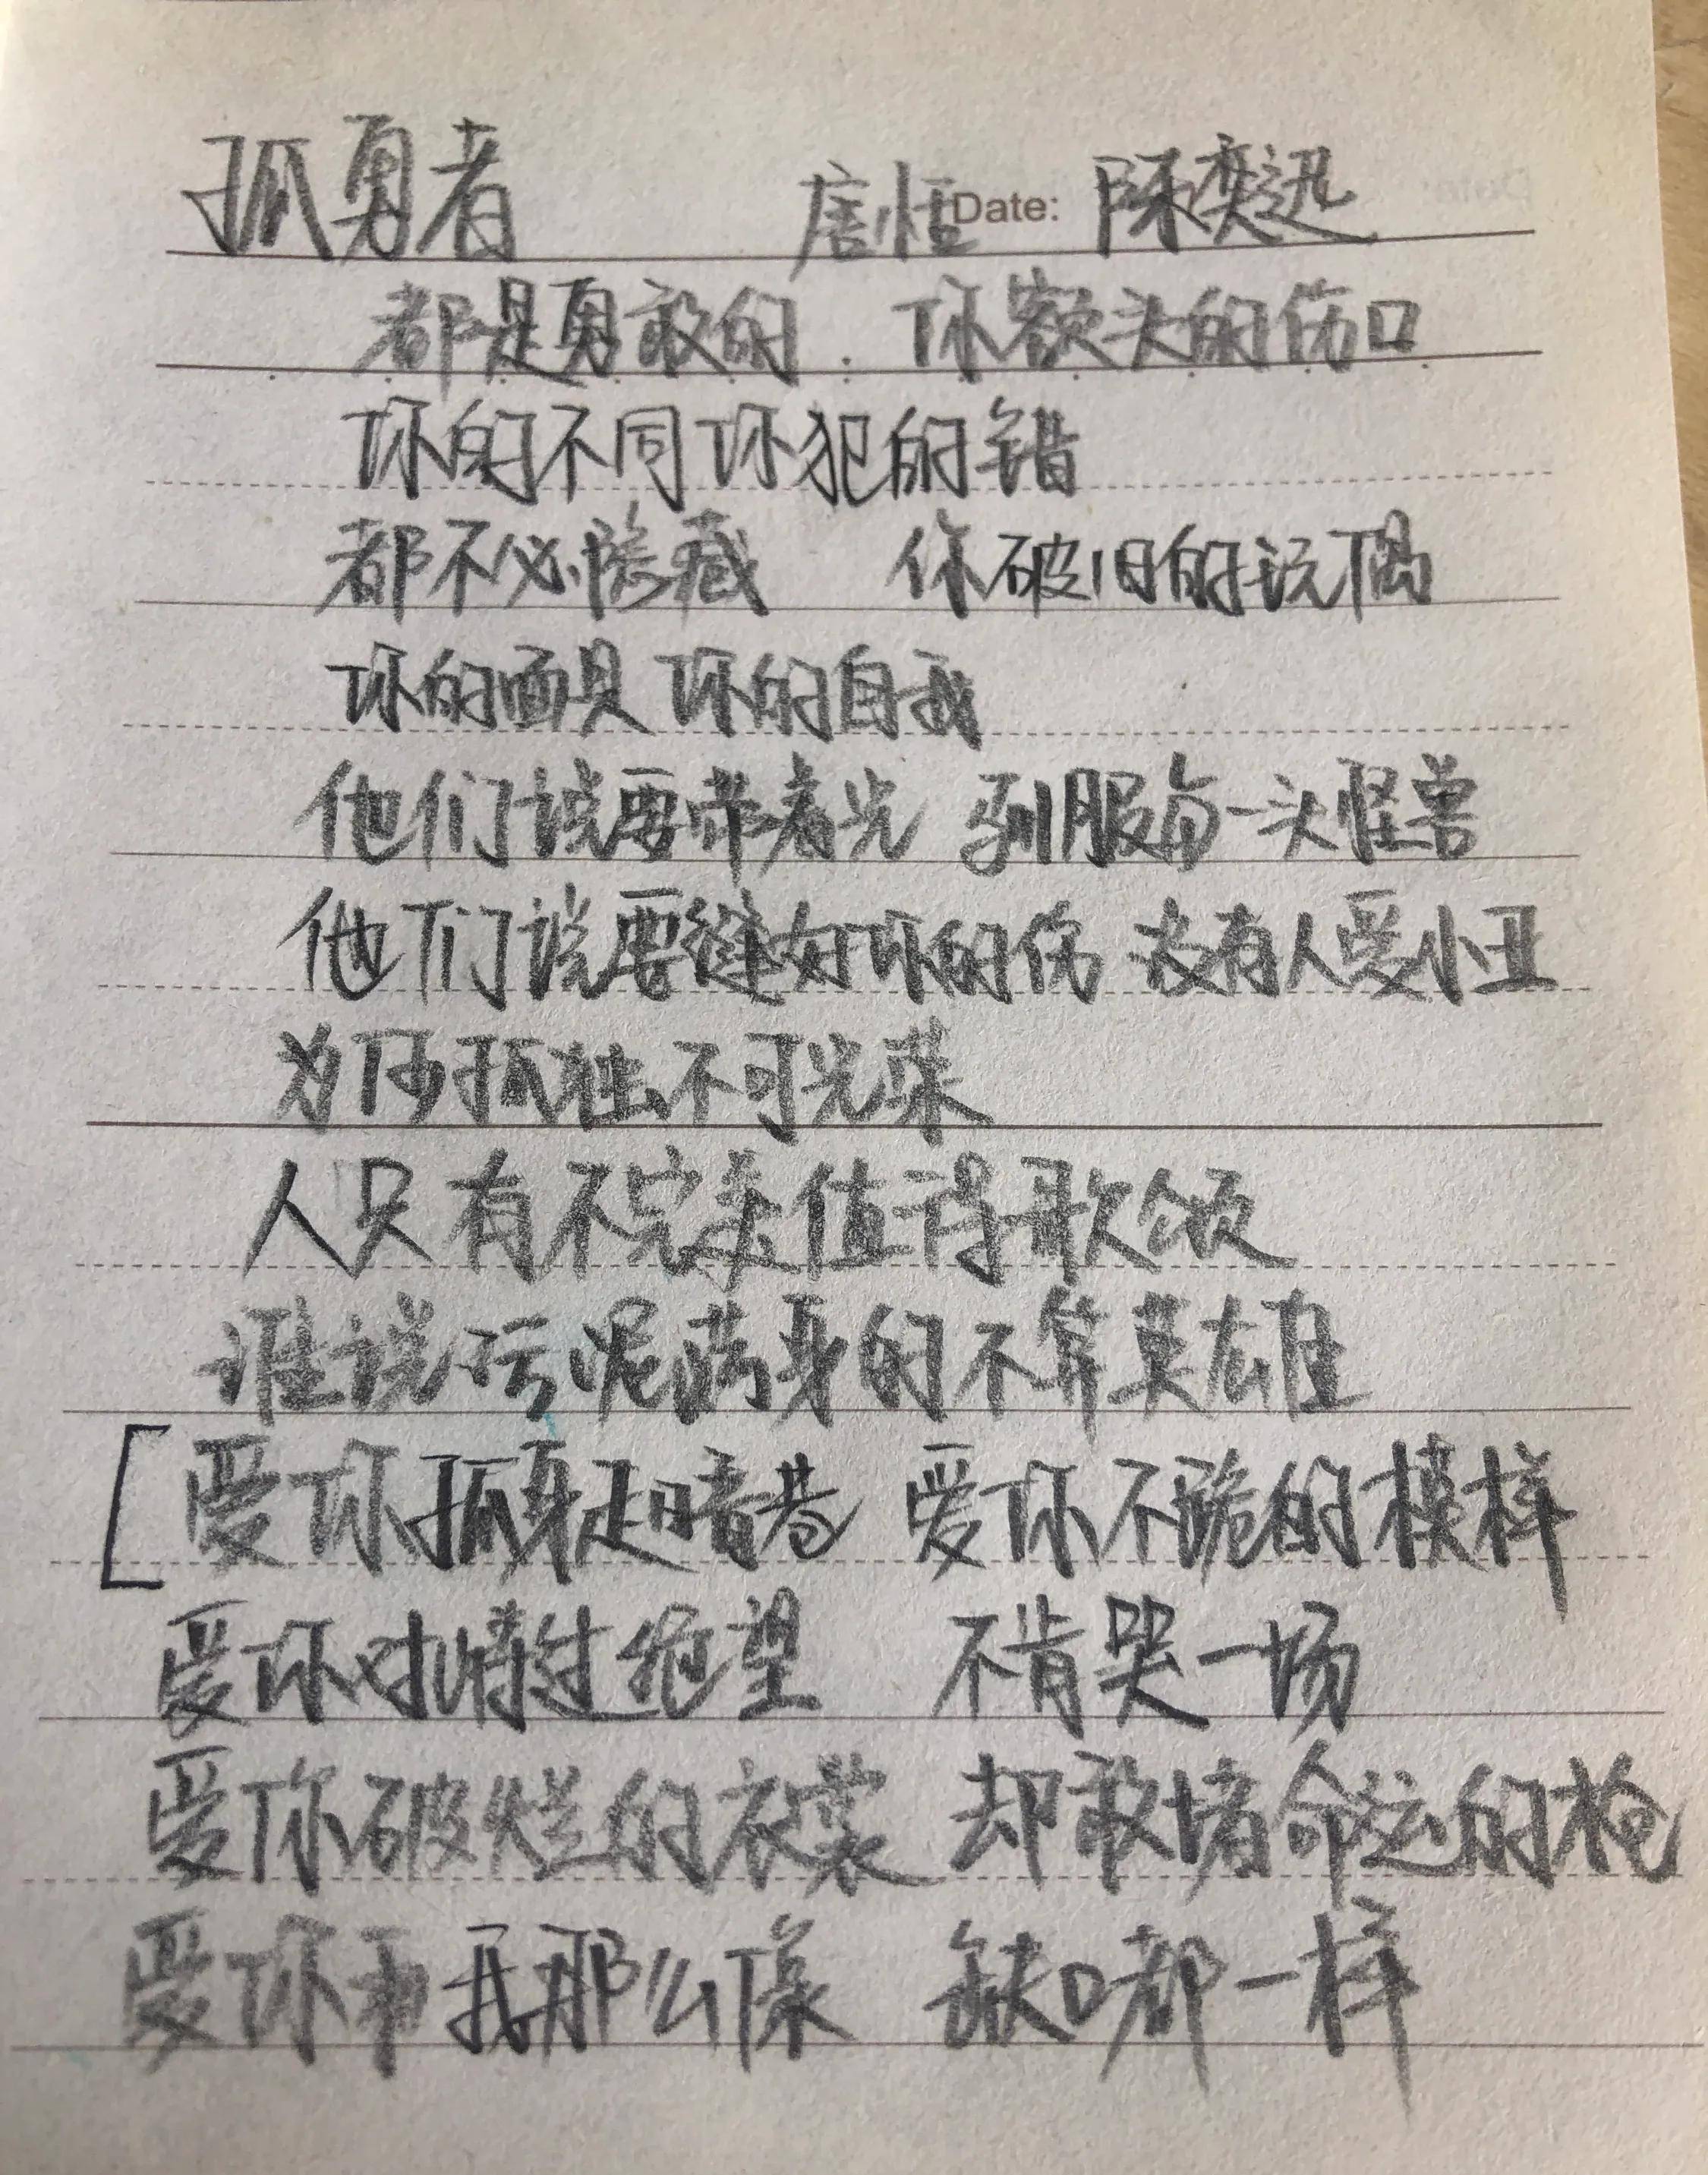 孤勇者 唐恬 Date: 陈奕迅
都是勇敢的. 你额头的伤口
你的不同你犯的错
都不必隐藏 你破旧的玩偶
你的面具 你的自我
他们说要带着光 驯服每一头怪兽
他们说要缝好你的伤 没有人爱小丑
为何孤独不可光荣
人只有不完美值得歌颂
谁说污泥满身的不算英雄
[爱你孤身走暗巷 爱你不跪的模样
爱你对峙过绝望 不肯哭一场
爱你破烂的衣裳 却敢堵命运的枪
爱你和我那么像 缺口都一样